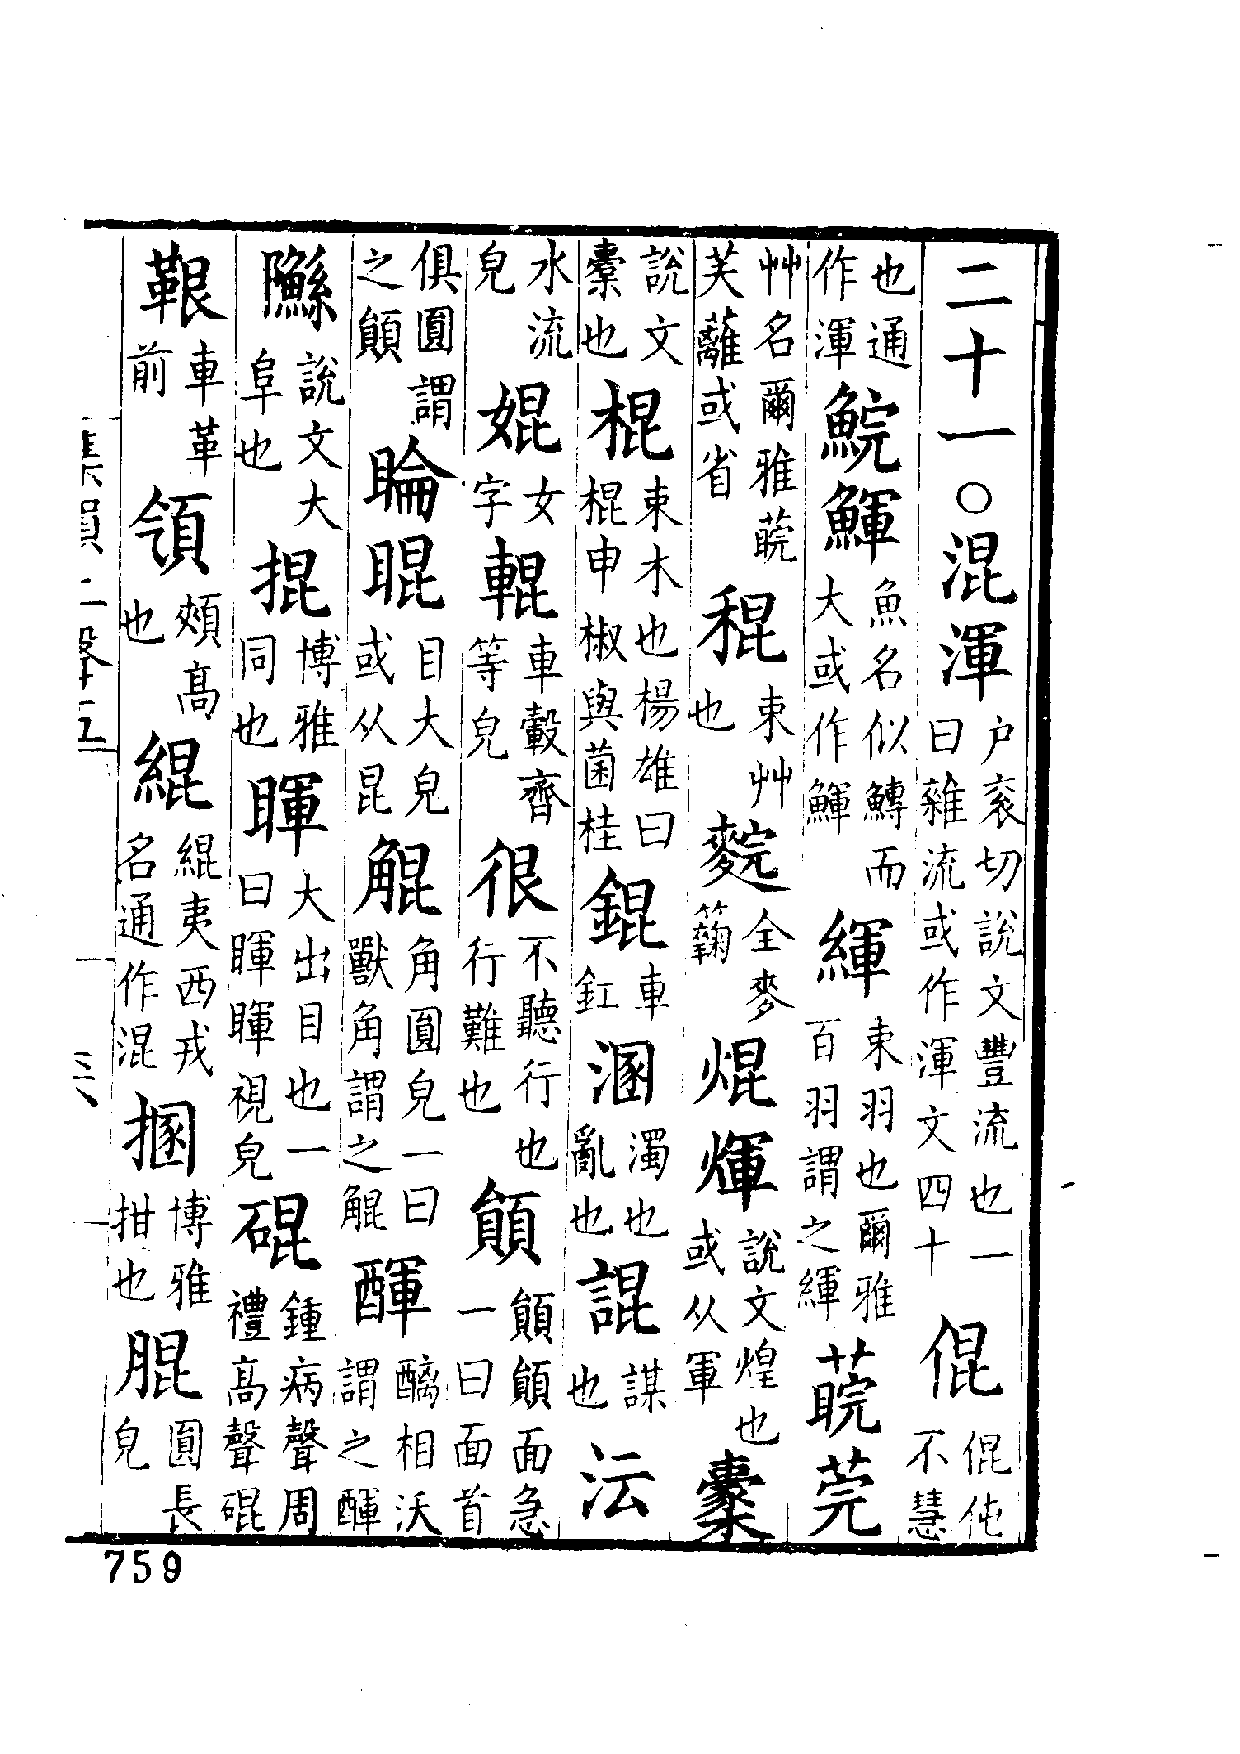 二十一○混渾户衮切説文豐流也一曰雜流或作渾文四十倱倱伅不慧
也通作渾鯇鯶魚名似鱄而大或作鯶緷束羽也爾雅百羽謂之緷莞
艸名爾雅莞苻蘺或省稇束艸也䴷全麥䵹焜煇説文煌也或从軍橐
説文橐也棍束木也楊雄曰棍申椒與菌桂錕車釭溷濁也亂也諢謀也沄
水流皃婫女字輥車轂齊等皃很不聽行也行難也顐顐顐面急一曰面首
俱圓謂之顐睔睴目大皃或从昆䚠角圓皃一曰獸角謂之䚠醌醨相沃謂之醌
䲰説文大𨸏也掍博雅同也睴大出目也一曰睴睴視皃硍鍾病聲周禮高聲硍
報車革前頜頰高也緄緄夷西戎名通作混捆博雅拑也䐊圓長皃
集韻上聲五
759